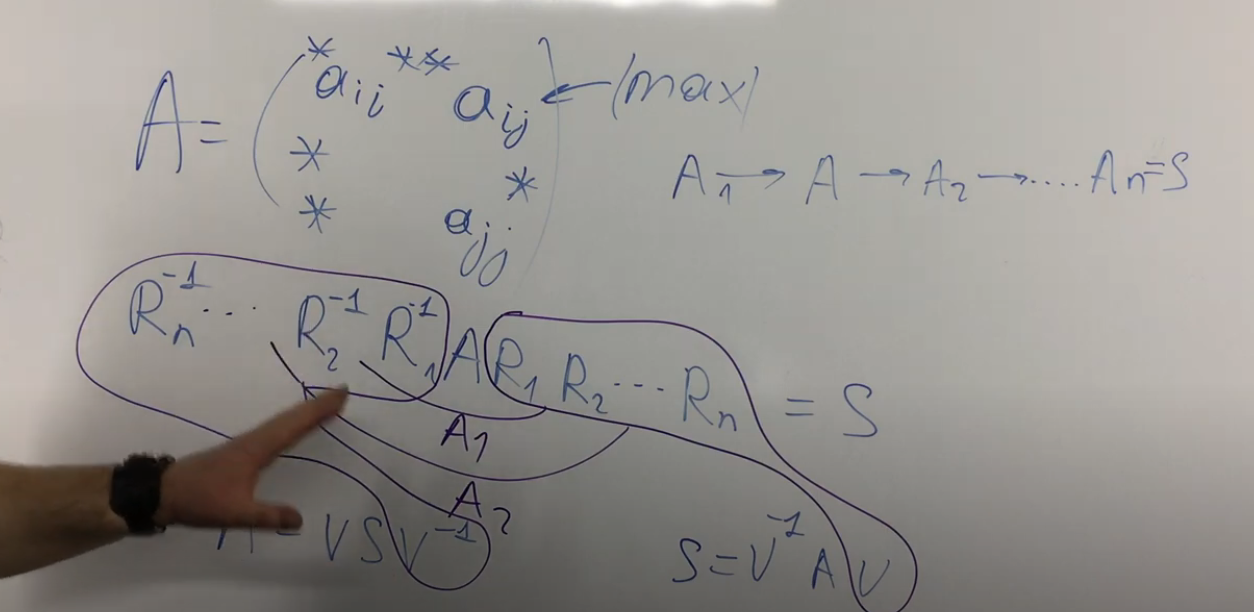 * a_ii ** a_ij ← (max)
A = ( * * )
* a_jj
A_1 → A → A_2 → .... A_n = S
R_n^-1 ... R_2^-1 R_1^-1 A R_1 R_2 ... R_n = S
A_1
A_2
= V S V^-1
S = V^-1 A V